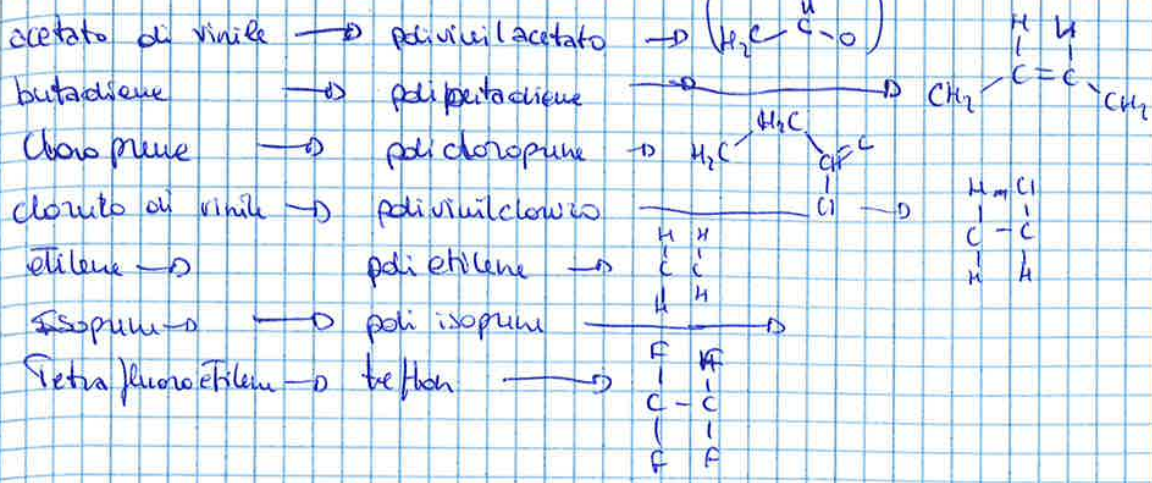 acetato di vinile → polivinilacetato → (H₂C C-O)
butadiene → polibutadiene → CH₂ C=C CH₂
H H
Cloroprene → policloroprene → H₂C H₂C CH C
Cl
cloruto di vinile → polivinilcloruro → H Cl
C - C
H H
etilene → poli etilene → H H
C C
H H
Isoprene → → poli isoprene →
Tetrafluoroetilene → teflon → F F
C - C
F F